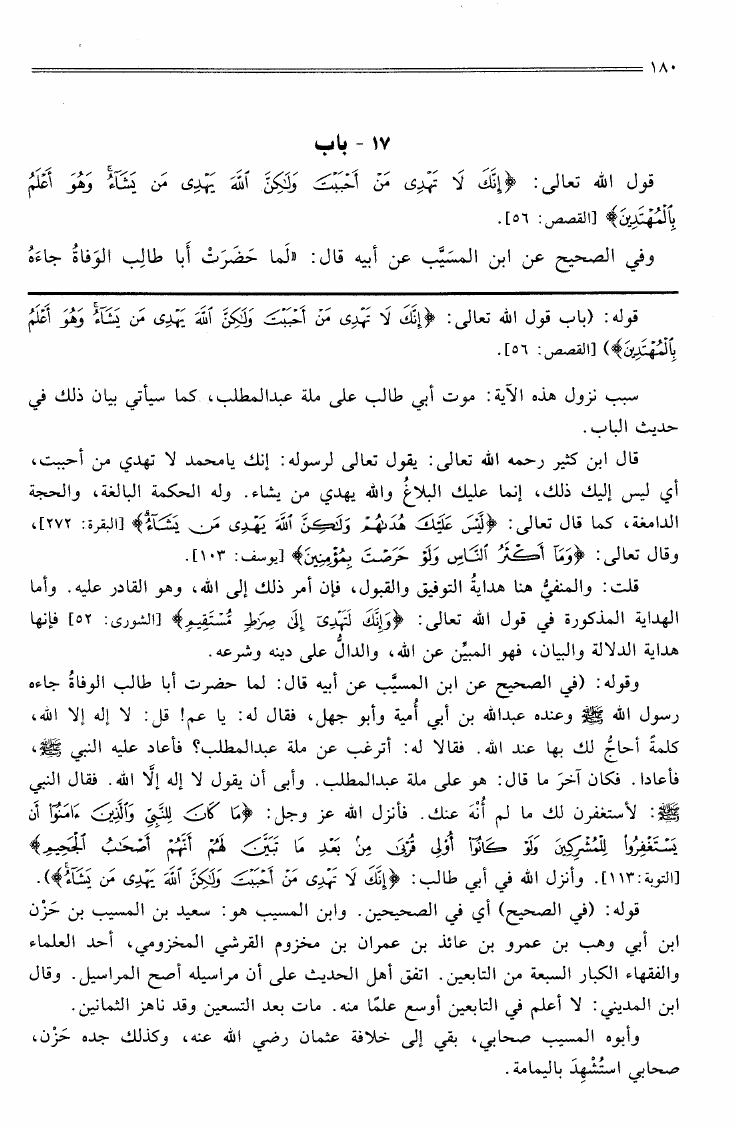 ١٨٠
١٧ - باب
قول الله تعالى: ﴿إِنَّكَ لَا تَهْدِى مَنْ أَحْبَبْتَ وَلَٰكِنَّ ٱللَّهَ يَهْدِى مَن يَشَآءُ ۚ وَهُوَ أَعْلَمُ
بِٱلْمُهْتَدِينَ﴾ [القصص: ٥٦].
وفي الصحيح عن ابن المسَيَّب عن أبيه قال: «لَما حَضَرَتْ أَبا طالِب الوَفاةُ جاءَهُ
قوله: (باب قول الله تعالى: ﴿إِنَّكَ لَا تَهْدِى مَنْ أَحْبَبْتَ وَلَٰكِنَّ ٱللَّهَ يَهْدِى مَن يَشَآءُ ۚ وَهُوَ أَعْلَمُ
بِٱلْمُهْتَدِينَ﴾) [القصص: ٥٦].
سبب نزول هذه الآية: موت أبي طالب على ملة عبدالمطلب، كما سيأتي بيان ذلك في
حديث الباب.
قال ابن كثير رحمه الله تعالى: يقول تعالى لرسوله: إنك يامحمد لا تهدي من أحببت،
أي ليس إليك ذلك، إنما عليك البلاغُ والله يهدي من يشاء. وله الحكمة البالغة، والحجة
الدامغة، كما قال تعالى: ﴿لَّيْسَ عَلَيْكَ هُدَىٰهُمْ وَلَٰكِنَّ ٱللَّهَ يَهْدِى مَن يَشَآءُ﴾ [البقرة: ٢٧٢]،
وقال تعالى: ﴿وَمَآ أَكْثَرُ ٱلنَّاسِ وَلَوْ حَرَصْتَ بِمُؤْمِنِينَ﴾ [يوسف: ١٠٣].
قلت: والمنفيُّ هنا هدايةُ التوفيق والقبول، فإن أمر ذلك إلى الله، وهو القادر عليه. وأما
الهداية المذكورة في قول الله تعالى: ﴿وَإِنَّكَ لَتَهْدِىٓ إِلَىٰ صِرَٰطٍ مُّسْتَقِيمٍ﴾ [الشورى: ٥٢] فإنها
هداية الدلالة والبيان، فهو المبيِّن عن الله، والدالُّ على دينه وشرعه.
وقوله: (في الصحيح عن ابن المسيَّب عن أبيه قال: لما حضرت أبا طالب الوفاةُ جاءه
رسول الله ﷺ وعنده عبدالله بن أبي أُمية وأبو جهل، فقال له: يا عم! قل: لا إله إلا الله،
كلمةً أحاجُّ لك بها عند الله. فقالا له: أترغب عن ملة عبدالمطلب؟ فأعاد عليه النبي ﷺ،
فأعادا. فكان آخرَ ما قال: هو على ملة عبدالمطلب. وأبى أن يقول لا إله إلَّا الله. فقال النبي
ﷺ: لأستغفرن لك ما لم أُنْهَ عنك. فأنزل الله عز وجل: ﴿مَا كَانَ لِلنَّبِىِّ وَٱلَّذِينَ ءَامَنُوٓا۟ أَن
يَسْتَغْفِرُوا۟ لِلْمُشْرِكِينَ وَلَوْ كَانُوٓا۟ أُو۟لِى قُرْبَىٰ مِنۢ بَعْدِ مَا تَبَيَّنَ لَهُمْ أَنَّهُمْ أَصْحَٰبُ ٱلْجَحِيمِ﴾
[التوبة: ١١٣]. وأنزل الله في أبي طالب: ﴿إِنَّكَ لَا تَهْدِى مَنْ أَحْبَبْتَ وَلَٰكِنَّ ٱللَّهَ يَهْدِى مَن يَشَآءُ ۚ﴾).
قوله: (في الصحيح) أي في الصحيحين. وابن المسيب هو: سعيد بن المسيب بن حَزْن
ابن أبي وهب بن عمرو بن عائذ بن عمران بن مخزوم القرشي المخزومي، أحد العلماء
والفقهاء الكبار السبعة من التابعين. اتفق أهل الحديث على أن مراسيله أصح المراسيل. وقال
ابن المديني: لا أعلم في التابعين أوسع علمًا منه. مات بعد التسعين وقد ناهز الثمانين.
وأبوه المسيب صحابي، بقي إلى خلافة عثمان رضي الله عنه، وكذلك جده حَزْن،
صحابي استُشْهِدَ باليمامة.